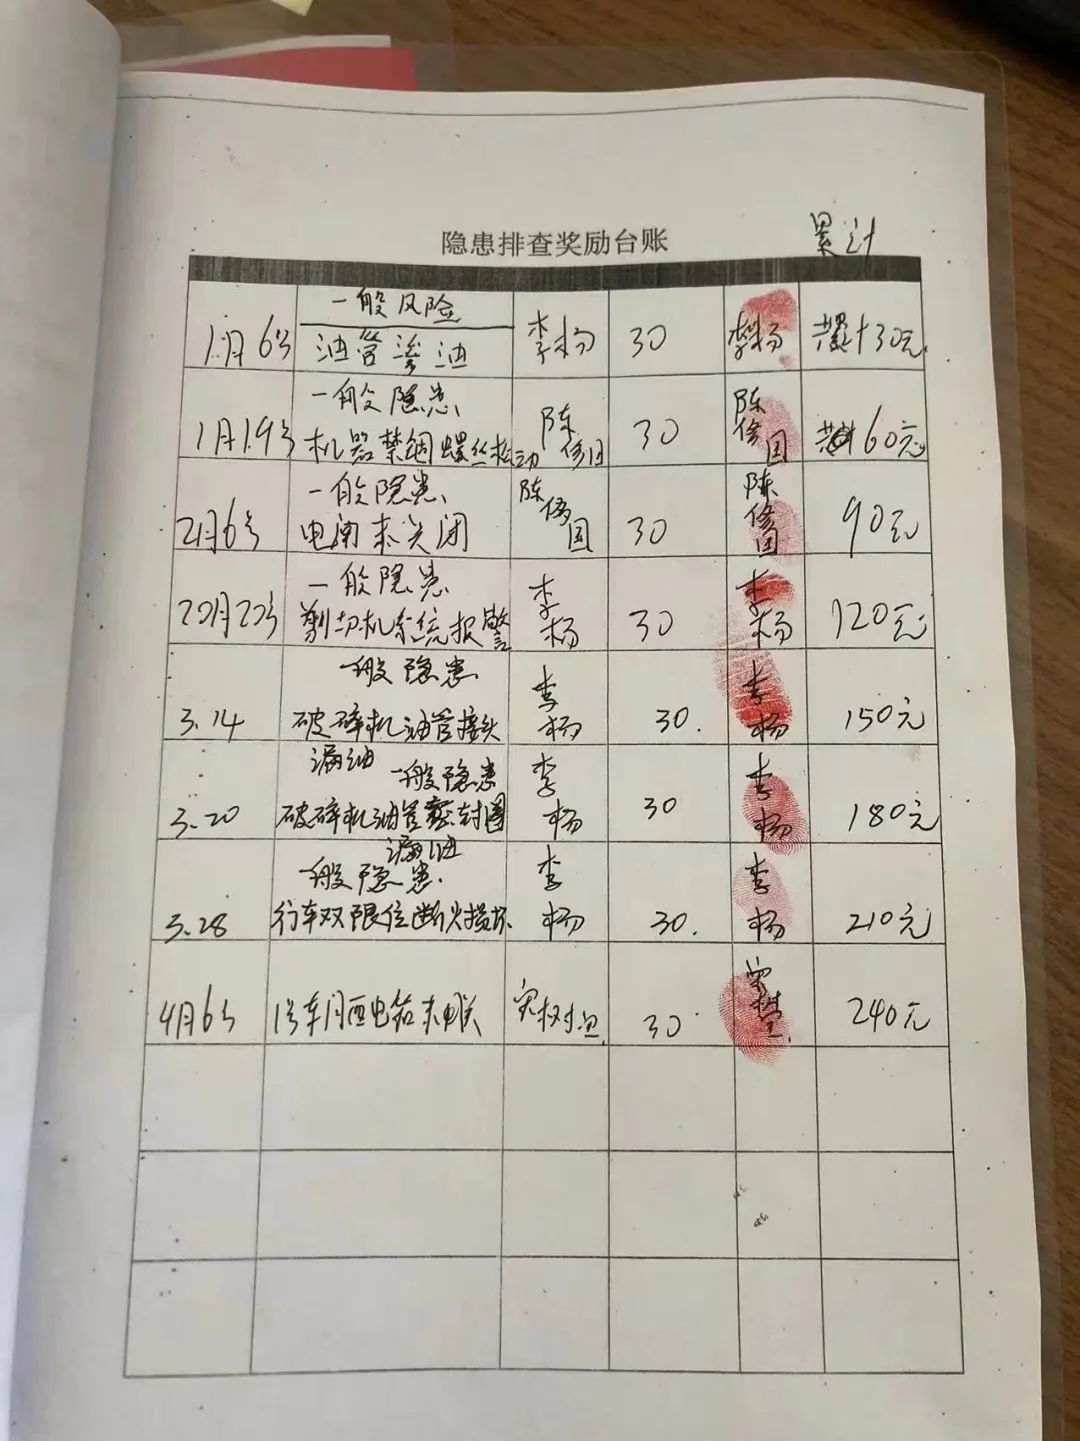 隐患排查奖励台账
累计
1月6号
一般风险
油管渗油
李杨
30
李杨
30元
1月19号
一般隐患
机器禁锢螺丝松动
陈修国
30
陈修国
60元
2月6号
一般隐患
电闸未关闭
陈修国
30
陈修国
90元
22号
一般隐患
剪切机系统报警
李杨
30
李杨
120元
3.14
一般隐患
破碎机油管接头
漏油
李杨
30.
李杨
150元
3.20
一般隐患
破碎机油管密封圈
漏油
李杨
30
李杨
180元
3.28
一般隐患.
行车双限位断火损坏
李杨
30.
李杨
210元
4月6号
1号车间西电箱未关
30
240元